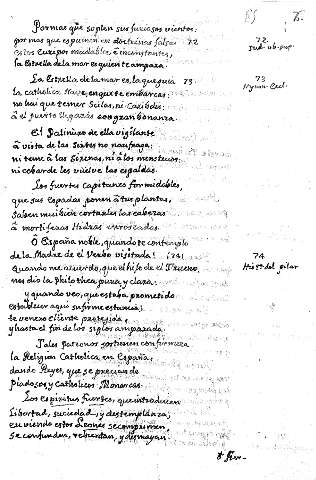 85 7.
Por mas que soplen sus furiosos vientos:
por mas que espumen en doctrinas falsas 72
estos Euripos mudables, è inconstantes,
la Estrella de la mar es quien te ampara.
72.
Jud. ub. sup.
La Estrella de la mar es, la que guia 73
la Catholica Nave, en que te embarcas:
no hai que temer Scilas, ni Caribdis:
à el puerto llegaràs con gran bonanza.
73
Hymn. Eccl.
El Palinuro de ella vigilante
à vista de las Sirtes no naufraga;
ni teme à las Syrenas, ni à los menstruos;
ni cobarde les vuelve las espaldas.
Los fuertes Capitanes formidables,
que sus espadas ponen à tus plantas,
saben mui bien cortarles las cabezas
à mortiferas Hidras enroscadas.
O España noble, quando te contemplo
de la Madre de el Verbo visitada! (74)
Quando me acuerdo, que el hijo de el Trueno,
nos diò la Philotheca pura, y clara:
74
Hist. del Pilar
y quando veo, que estaba prometido
establecer aqui su firme estancia;
te venero cliente protegida,
y hasta el fin de los siglos amparada.
Tales patronos sostienen con firmeza
la Religion Catholica en España,
donde Reyes, que se precian de
Piadosos, y Catholicos Monarcas.
Los espiritus fuertes, que introducen
libertad, suciedad, y destemplanza;
en viendo estos Leones se comprimen,
se confunden, rebientan, y desmayan.